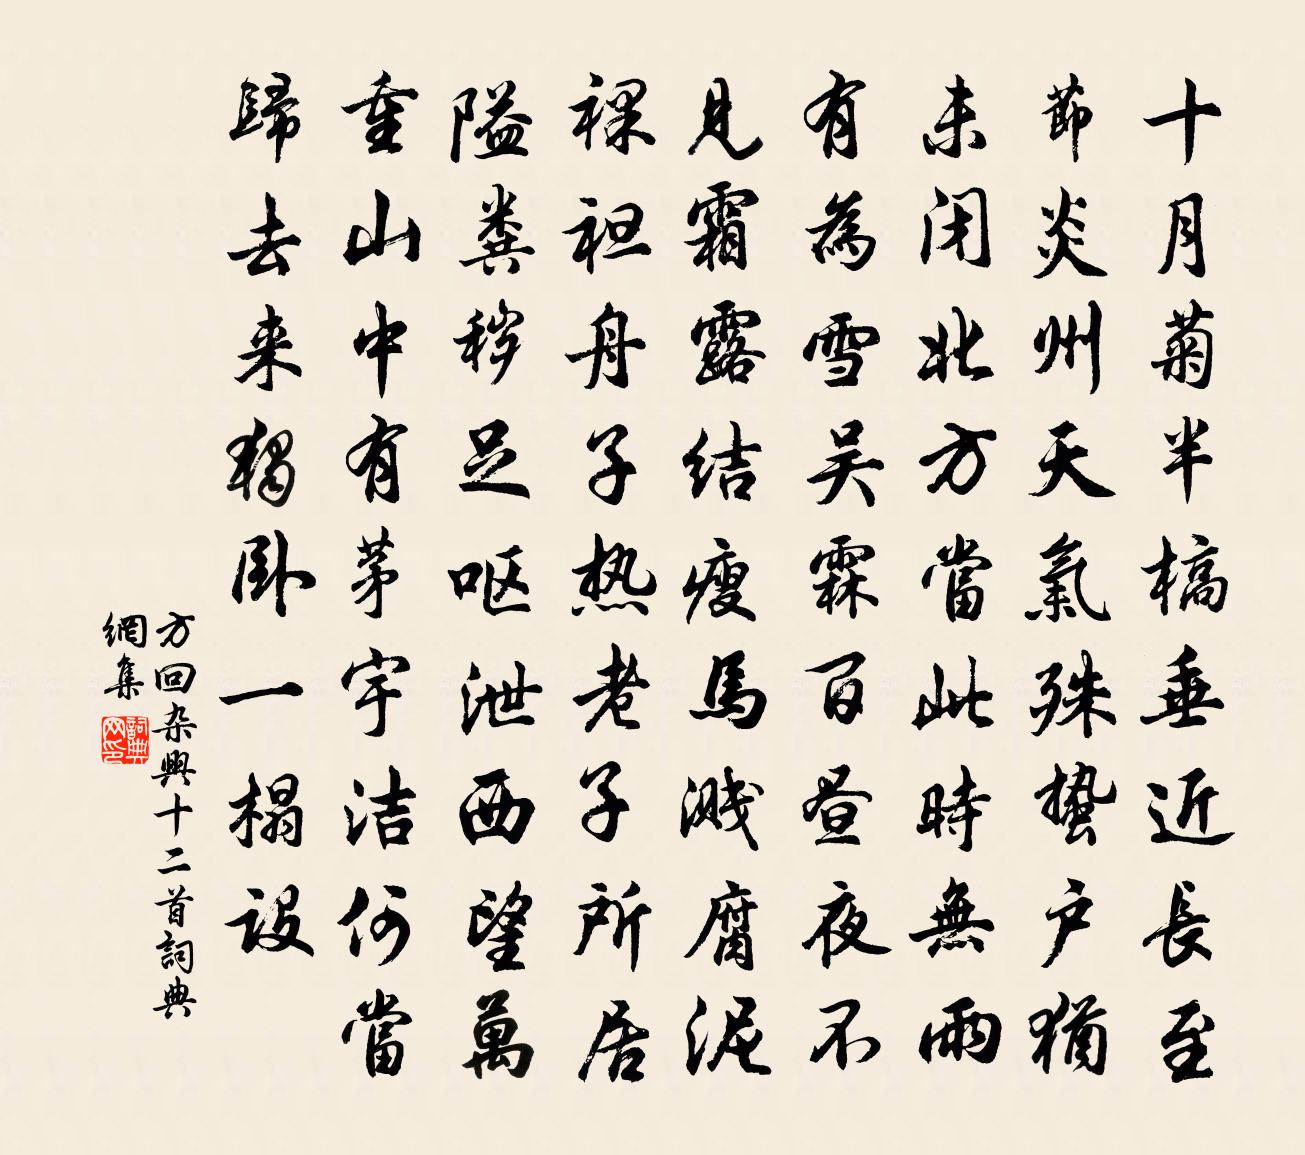 十月菊半槁垂近長至
節炎州天氣殊蟄户猶
未闭北方當此時無雨
有為雪吴霖百昼夜不
見霜露结瘦馬溅腐泥
裸袒舟子热老子所居
隘粪秽足呕泄西望萬
重山中有茅宇洁何當
歸去来独卧一榻设
方回杂興十二首詞典
網集
詞典网印